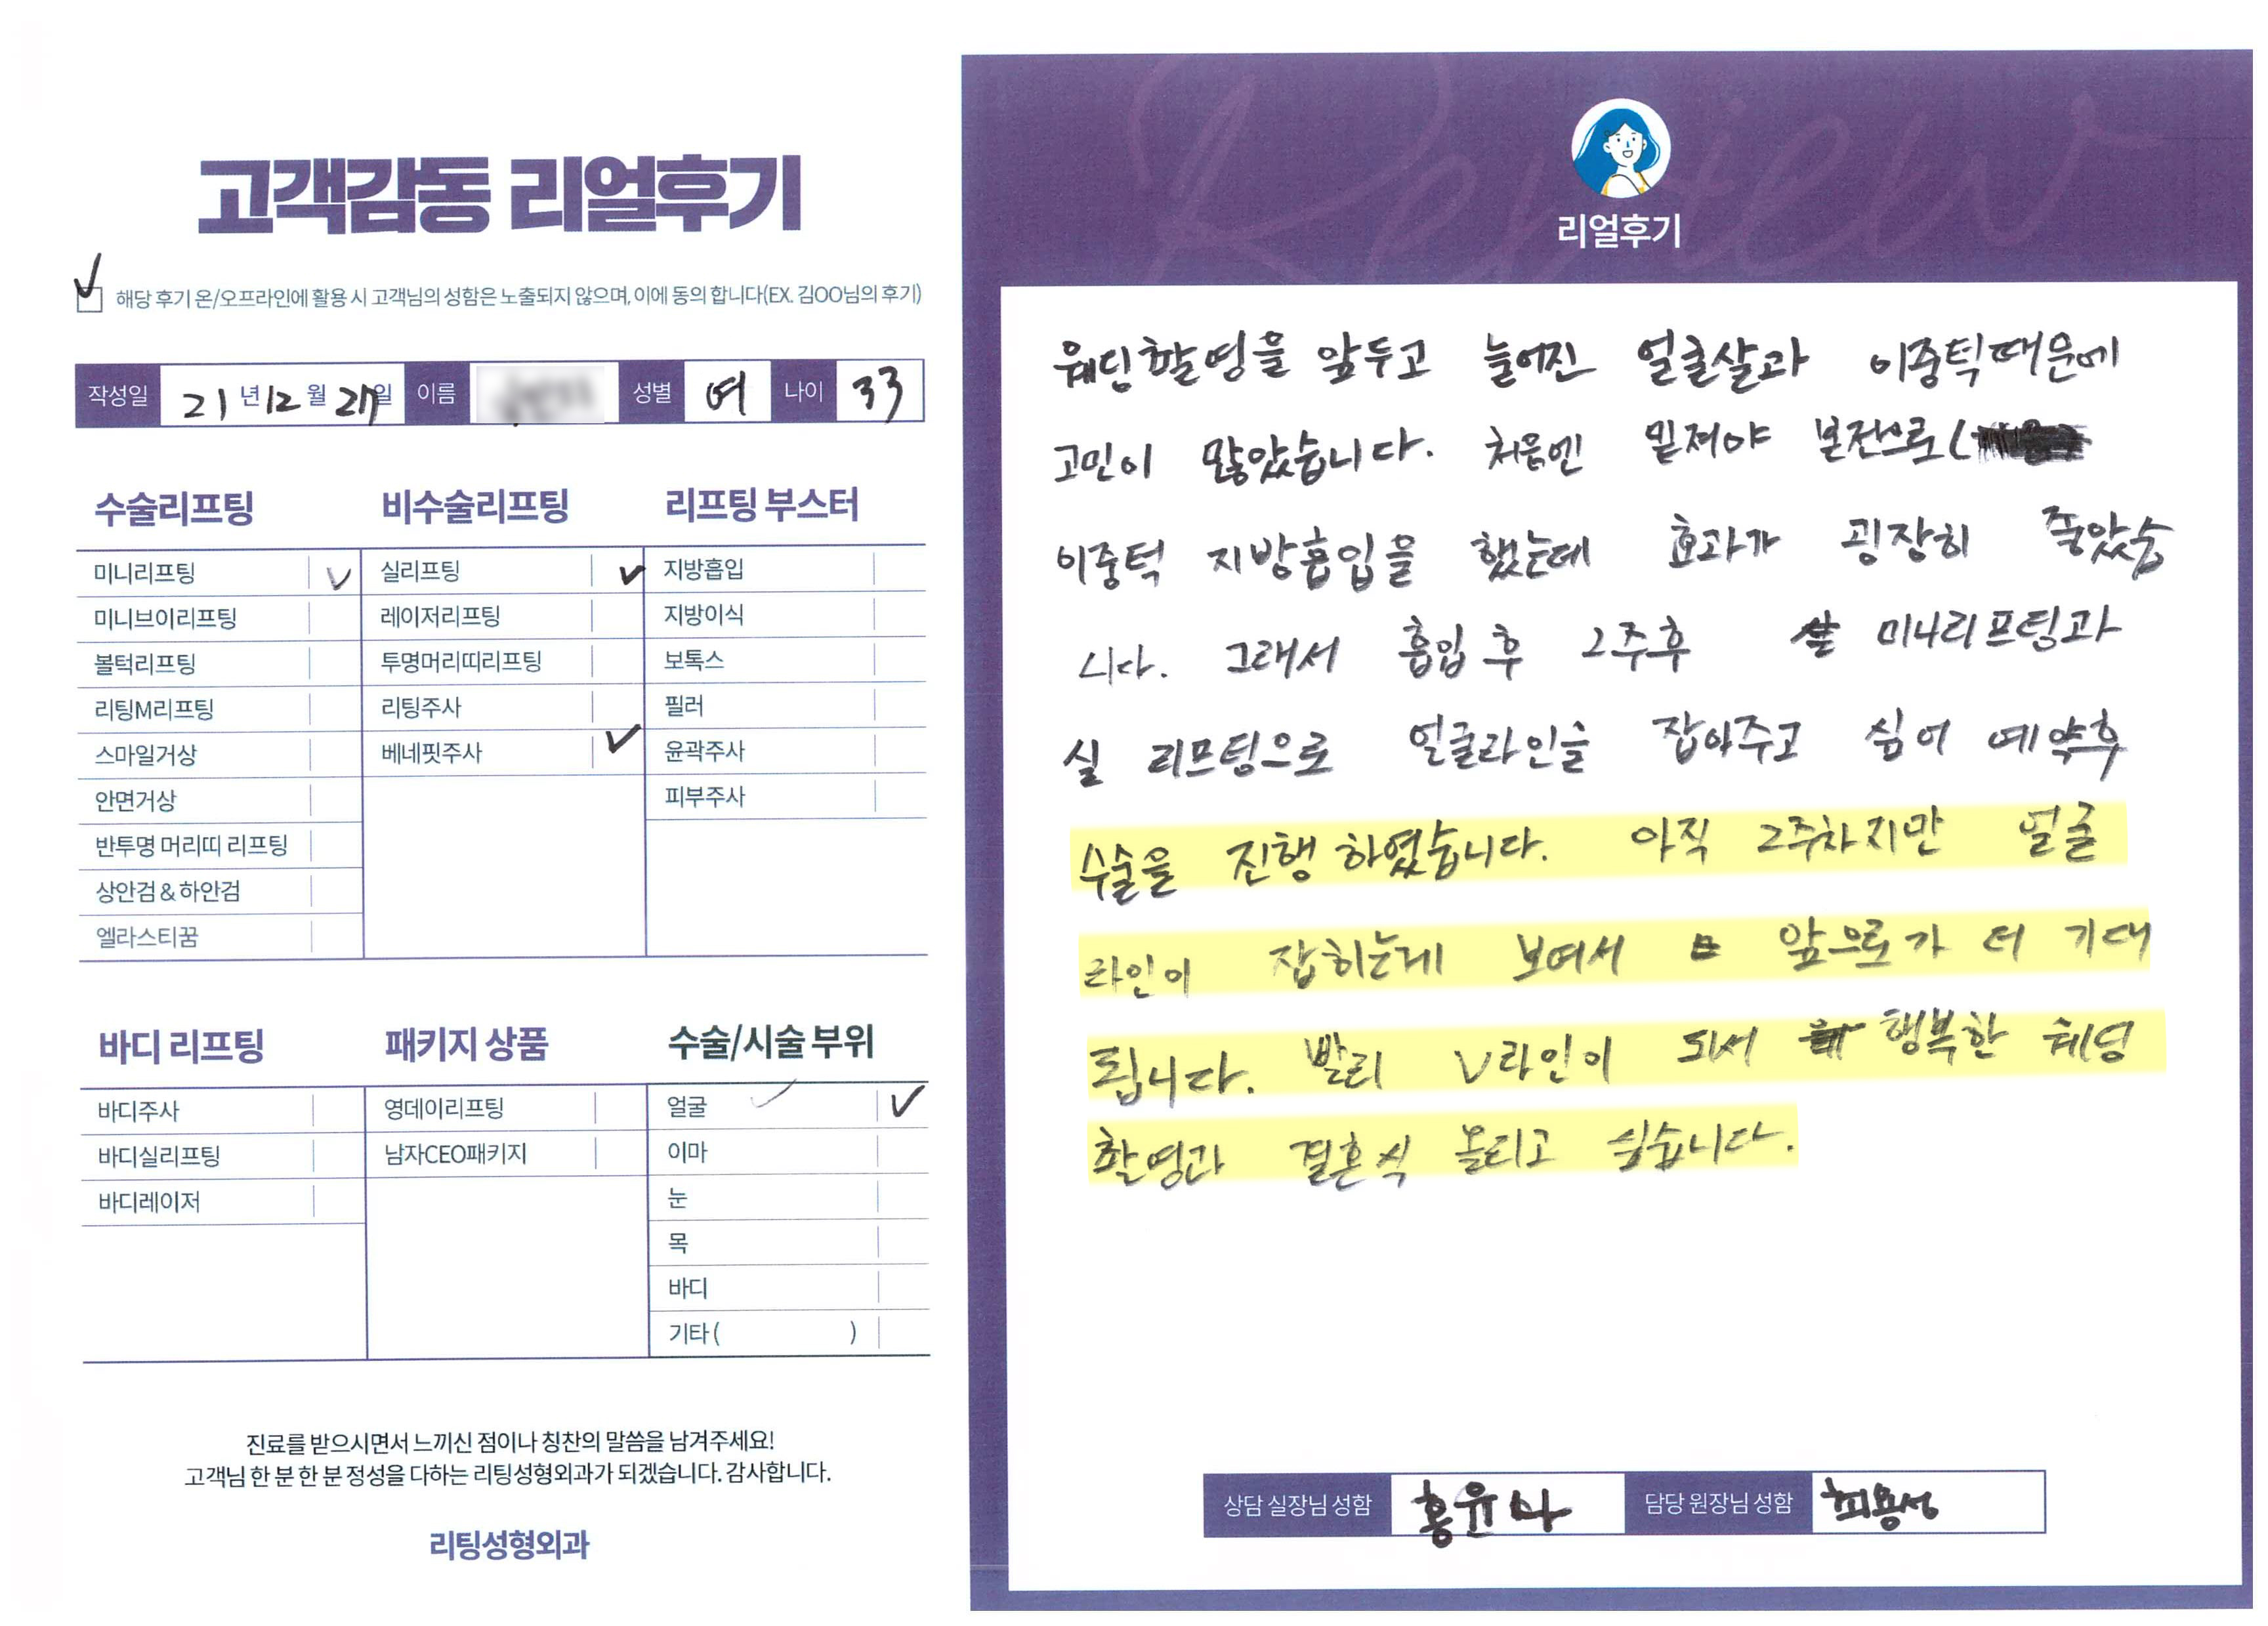 고객감동 리얼후기
해당 후기 온/오프라인에 활용 시 고객님의 성함은 노출되지 않으며, 이에 동의 합니다(EX. 김OO님의 후기)
작성일 21년 12월 27일 이름 성별 여 나이 33
수술리프팅
미니리프팅
미니브이리프팅
볼턱리프팅
리팅M리프팅
스마일거상
안면거상
반투명 머리띠 리프팅
상안검 & 하안검
엘라스티꿈
비수술리프팅
실리프팅
레이저리프팅
투명머리띠리프팅
리팅주사
베네핏주사
리프팅 부스터
지방흡입
지방이식
보톡스
필러
윤곽주사
피부주사
바디 리프팅
바디주사
바디실리프팅
바디레이저
패키지 상품
영데이리프팅
남자CEO패키지
수술/시술 부위
얼굴
이마
눈
목
바디
기타 ( )
진료를 받으시면서 느끼신 점이나 칭찬의 말씀을 남겨주세요!
고객님 한 분 한 분 정성을 다하는 리팅성형외과가 되겠습니다. 감사합니다.
리팅성형외과
Review
리얼후기
웨딩촬영을 앞두고 늘어진 얼굴살과 이중턱때문에
고민이 많았습니다. 처음엔 밑져야 본전으로(
이중턱 지방흡입을 했는데 효과가 굉장히 좋았습
니다. 그래서 흡입 후 2주후 미니리프팅과
실 리프팅으로 얼굴라인을 잡아주고 싶어 예약후
수술을 진행 하였습니다. 아직 2주차지만 얼굴
라인이 잡히는게 보여서 앞으로가 더 기대
됩니다. 빨리 V라인이 되서 행복한 웨딩
촬영과 결혼식 올리고 싶습니다.
상담 실장님 성함 홍윤나 담당 원장님 성함 최용성